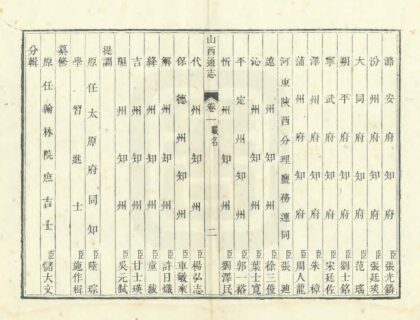 潞安府知府臣張光鏻
汾州府知府臣張廷瑛
大同府知府臣范瑤
朔平府知府臣劉士銘
寧武府知府臣宋廷佐
澤州府知府臣朱樟
蒲州府知府臣周人龍
河東陝西分理鹽務運同臣張迪
遼州知州臣徐三俊
沁州知州臣葉士寬
平定州知州臣郭一裕
忻州知州臣劉澤民
山西通志卷一職名二
代州知州臣楊弘志
保德州知州臣車敏來
解州知州臣許日熾
絳州知州臣童紱
吉州知州臣甘士瑛
隰州知州臣吳元鋱
提調
原任太原府同知臣陸琮
纂修
學習進士臣施作楫
分輯
原任翰林院庶吉士臣儲大文